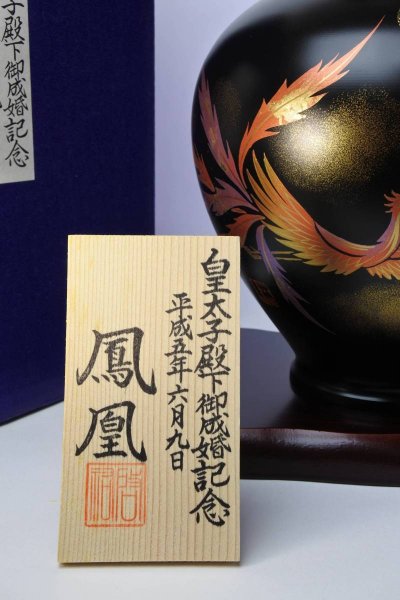 皇太子殿下御成婚記念
平成五年六月九日
鳳凰
子殿下御成婚記念